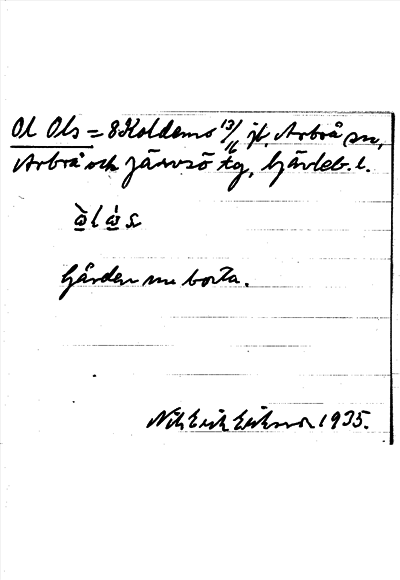 Ol Ols = 8 Koldemo 13/16 jt, Arbrå sn,
Arbrå och Järvsö tg, Gävleb. l.
ὼlώs
Gården nu borta.
Nils Erik Eriksson 1935.